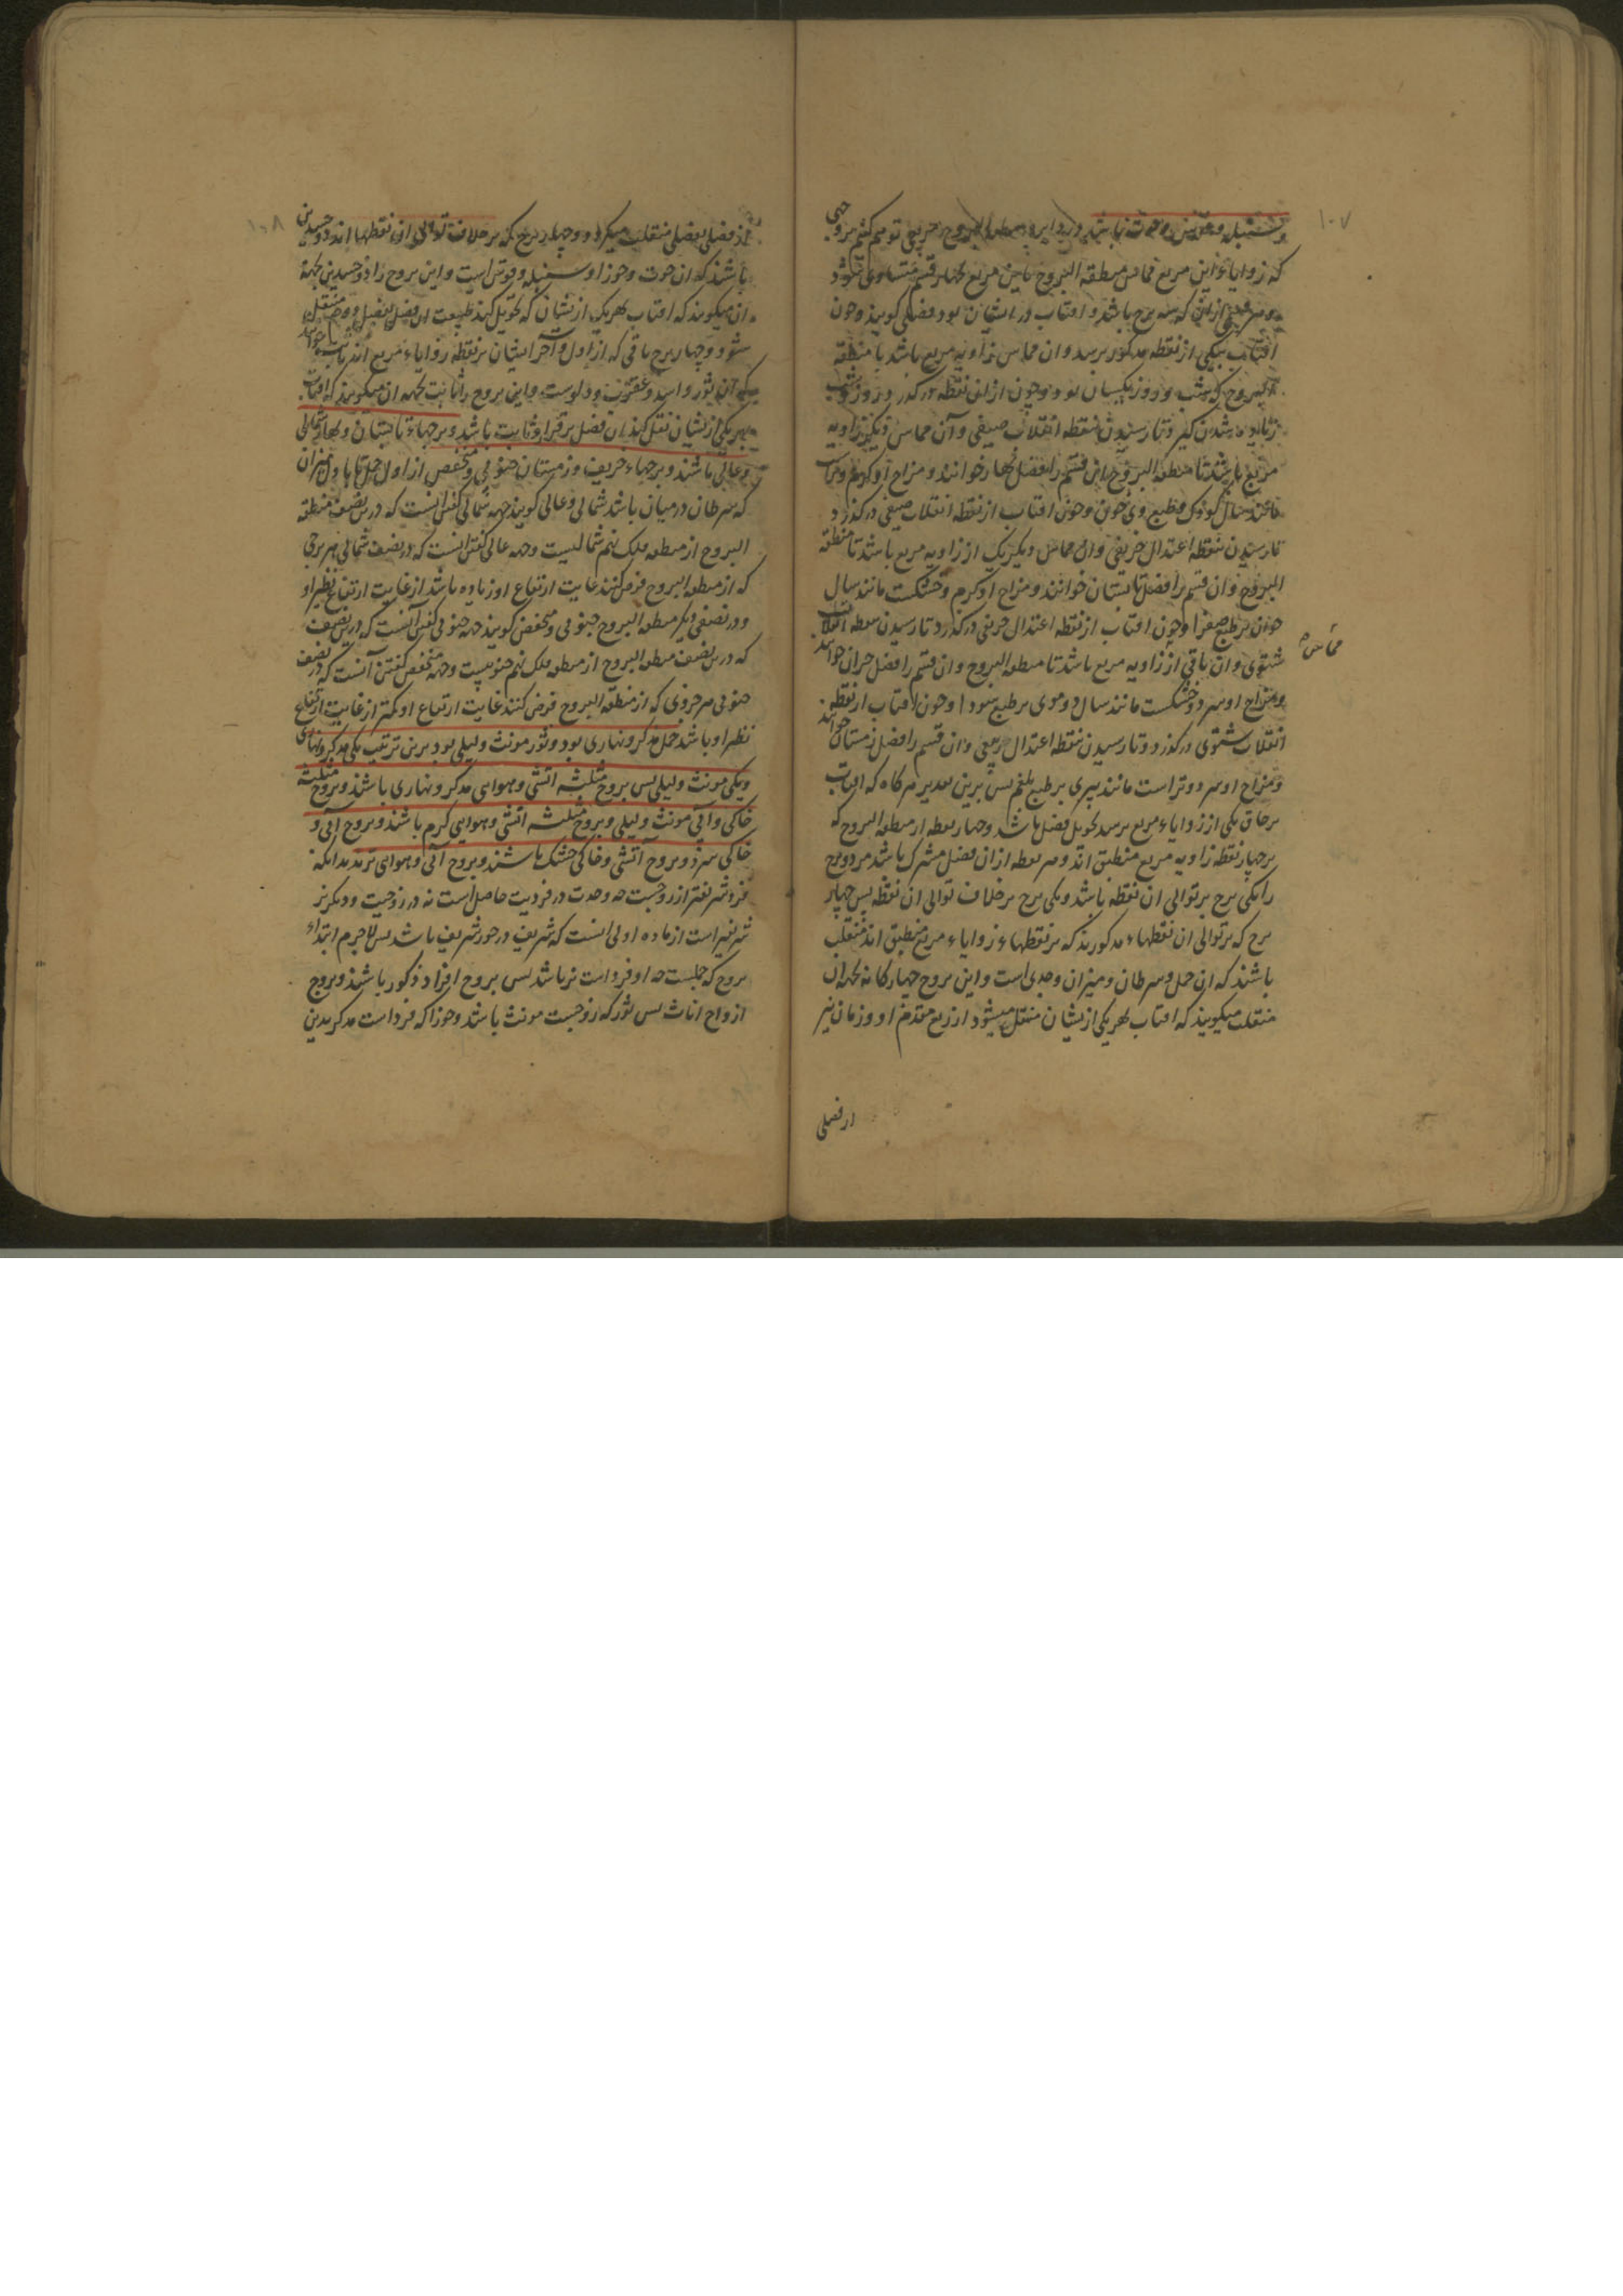 ۱۰۷
و سنبله و قوس و حوت باشد و در دایره منطقه البروج مربعی توهم کنیم بروجهی
که زوایاء این مربع مماس منطقه البروج باین مربع بچهار قسم متساوی شود
و هر قسمی ازیشان که سه برج باشد و افتاب در ایشان بود فصلی گویند و چون
افتاب بیکی از نقطه مذکور برسد و ان مماس زاویه مربع باشد با منطقه
البروج که شب و روز یکسان بود و چون ازان نقطه درگذرد و روز بر شب
زیاده شدن گیرد تا رسیدن بنقطه انقلاب صیفی و آن مماس دیگر زاویه
مربع باشد تا منطقه البروج این قسم را فصل بهار خوانند و مزاج او گرم و تر است
مانند سال کودک بطبع وی خون و چون افتاب از نقطه انقلاب صیفی درگذرد
تا رسیدن بنقطه اعتدال خریفی و ان مماس دیگریک از زاویه مربع باشد تا منطقه
البروج و ان قسم را فصل تابستان خوانند و مزاج او گرم و خشکست مانند سال
جوان بر طبع صفرا و چون افتاب از نقطه اعتدال خریفی درگذرد تا رسیدن نقطه انقلاب
شتوی و ان باقی از زاویه مربع باشد تا منطقه البروج و ان قسم را فصل خزان خوانند
مماس
و مزاج او سرد و خشکست مانند سال دوموی بر طبع سودا و چون افتاب از نقطه
انقلاب شتوی درگذرد و تا رسیدن نقطه اعتدال ربیعی و ان قسم را فصل زمستان خوانند
و مزاج او سرد و تر است مانند پیری بر طبع بلغم پس برین تقدیر هرگاه که افتاب
بر حاق یکی از زوایاء مربع برسد تحویل فصل باشد و چهار نقطه از منطقه البروج که
بر چهار نقطه زاویه مربع منطبق اند و هر نقطه ازان فصل مشترک باشد هر دو برج
را یکی برج بر توالی ان نقطه باشد و یکی برج بر خلاف توالی ان نقطه پس چهار
برج که بر توالی ان نقطهاء مذکورند که بر نقطهاء زوایاء مربع منطبق اند منقلب
باشند که ان حمل و سرطان و میزان و جدی است و این بروج چهارگانه بجهة ان
منقلب میگویند که افتاب بهر یکی ازیشان منتقل میشود از ربع متقدم او و زمان نیز
از فصلی
۱۰۸
از فصلی بفصلی منقلب میگردد و چهار برج که بر خلاف توالی ان نقطها اند ذو جسدین
باشند که ان حوت و جوزا و سنبله و قوس است و این بروج را ذو جسدین بجهة
ان میگویند که افتاب بهر یک ازیشان که تحویل کند طبیعت ان فصل بفصل دوم منتقل
شود و چهار برج باقی که از اول و آخر ایشان بر نقطه زوایاء مربع اند ثابت خوانند
که آن ثور و اسد و عقرب و دلوست و این بروج را ثابت بجهة ان میگویند که افتاب
بهر یکی ازیشان نقل کند ان فصل بر قرار و ثابت باشد و برجهاء تابستان و بهار شمالی
و عالی باشند و برجهاء خریف و زمستان جنوبی و منخفض از اول حمل تا باول میزان
که سرطان در میان باشد شمالی و عالی گویند جهة شمالی گفتن انست که درین نصف منطقه
البروج از منطقه فلک نهم شمالیست و جهة عالی گفتن انست که در نصف شمالی هر برجی
که از منطقه البروج فرض کنند غایت ارتفاع او زیاده باشد از غایت ارتفاع نظیر او
و در نصفی دیگر منطقه البروج جنوبی و منخفض گویند جهة جنوبی گفتن آنست که درین نصف
که درین نصف منطقه البروج از منطقه فلک نهم جنوبیست و جهة منخفض گفتن آنست که در نصف
جنوبی هر جزوی که از منطقه البروج فرض کنند غایت ارتفاع او کمتر از غایت ارتفاع
نظیر او باشد حمل مذکر و نهاری بود و ثور مونث و لیلی بود برین ترتیب یکی مذکر و نهاری
و یکی مونث و لیلی پس بروج مثلثه اتشی و هوایی مذکر و نهاری باشند و بروج مثلثه
خاکی و آبی مونث و لیلی و بروج مثلثه اتشی و هوایی گرم باشند و بروج آبی و
خاکی سرد و بروج آتشی و خاکی خشک باشند و بروج آبی و هوایی تر بدانکه
فرد شریفتر از زوجست چه وحدت در فردیت حاصل است نه در زوجیت و دیگر نر
شریفتر است از ماده اولی انست که شریف در خور شریف باشد پس لاجرم ابتداء
بروج که حملست چه او فرد است نر باشد پس بروج افراد ذکور باشند و بروج
ازواج اناث پس ثور که زوجست مونث باشد و جوزا که فرد است مذکر بدین